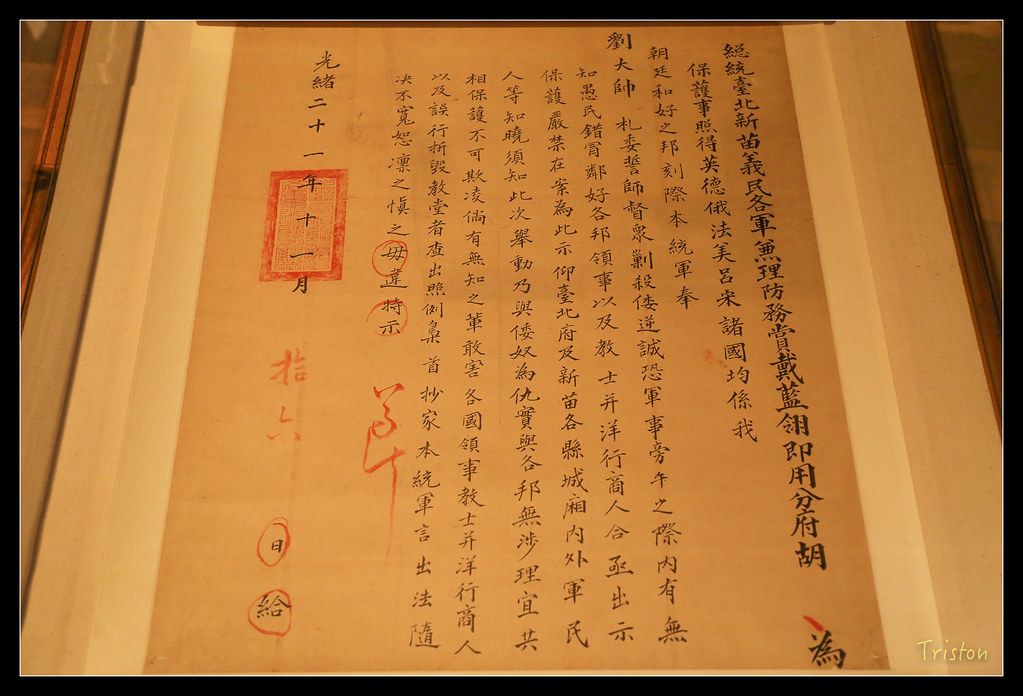 總統臺北新苗義民各軍兼理防務賞戴藍翎即用分府胡 為
保護事照得英德俄法美呂宋諸國均係我
朝廷和好之邦刻際本統軍奉
劉大帥 札委誓師督衆剿殺倭逆誠恐軍事旁午之際內有無
知愚民錯冒鄰好各邦領事以及教士并洋行商人合亟出示
保護嚴禁在案為此示仰臺北府及新苗各縣城廂內外軍民
人等知曉須知此次舉動乃與倭奴為仇實與各邦無涉理宜共
相保護不可欺凌倘有無知之輩敢害各國領事教士并洋行商人
以及誤行折毀教堂者查出照例梟首抄家本統軍言出法隨
决不寬恕凛之慎之毋違特示
光緒二十一年十一月拾六日給
Triston